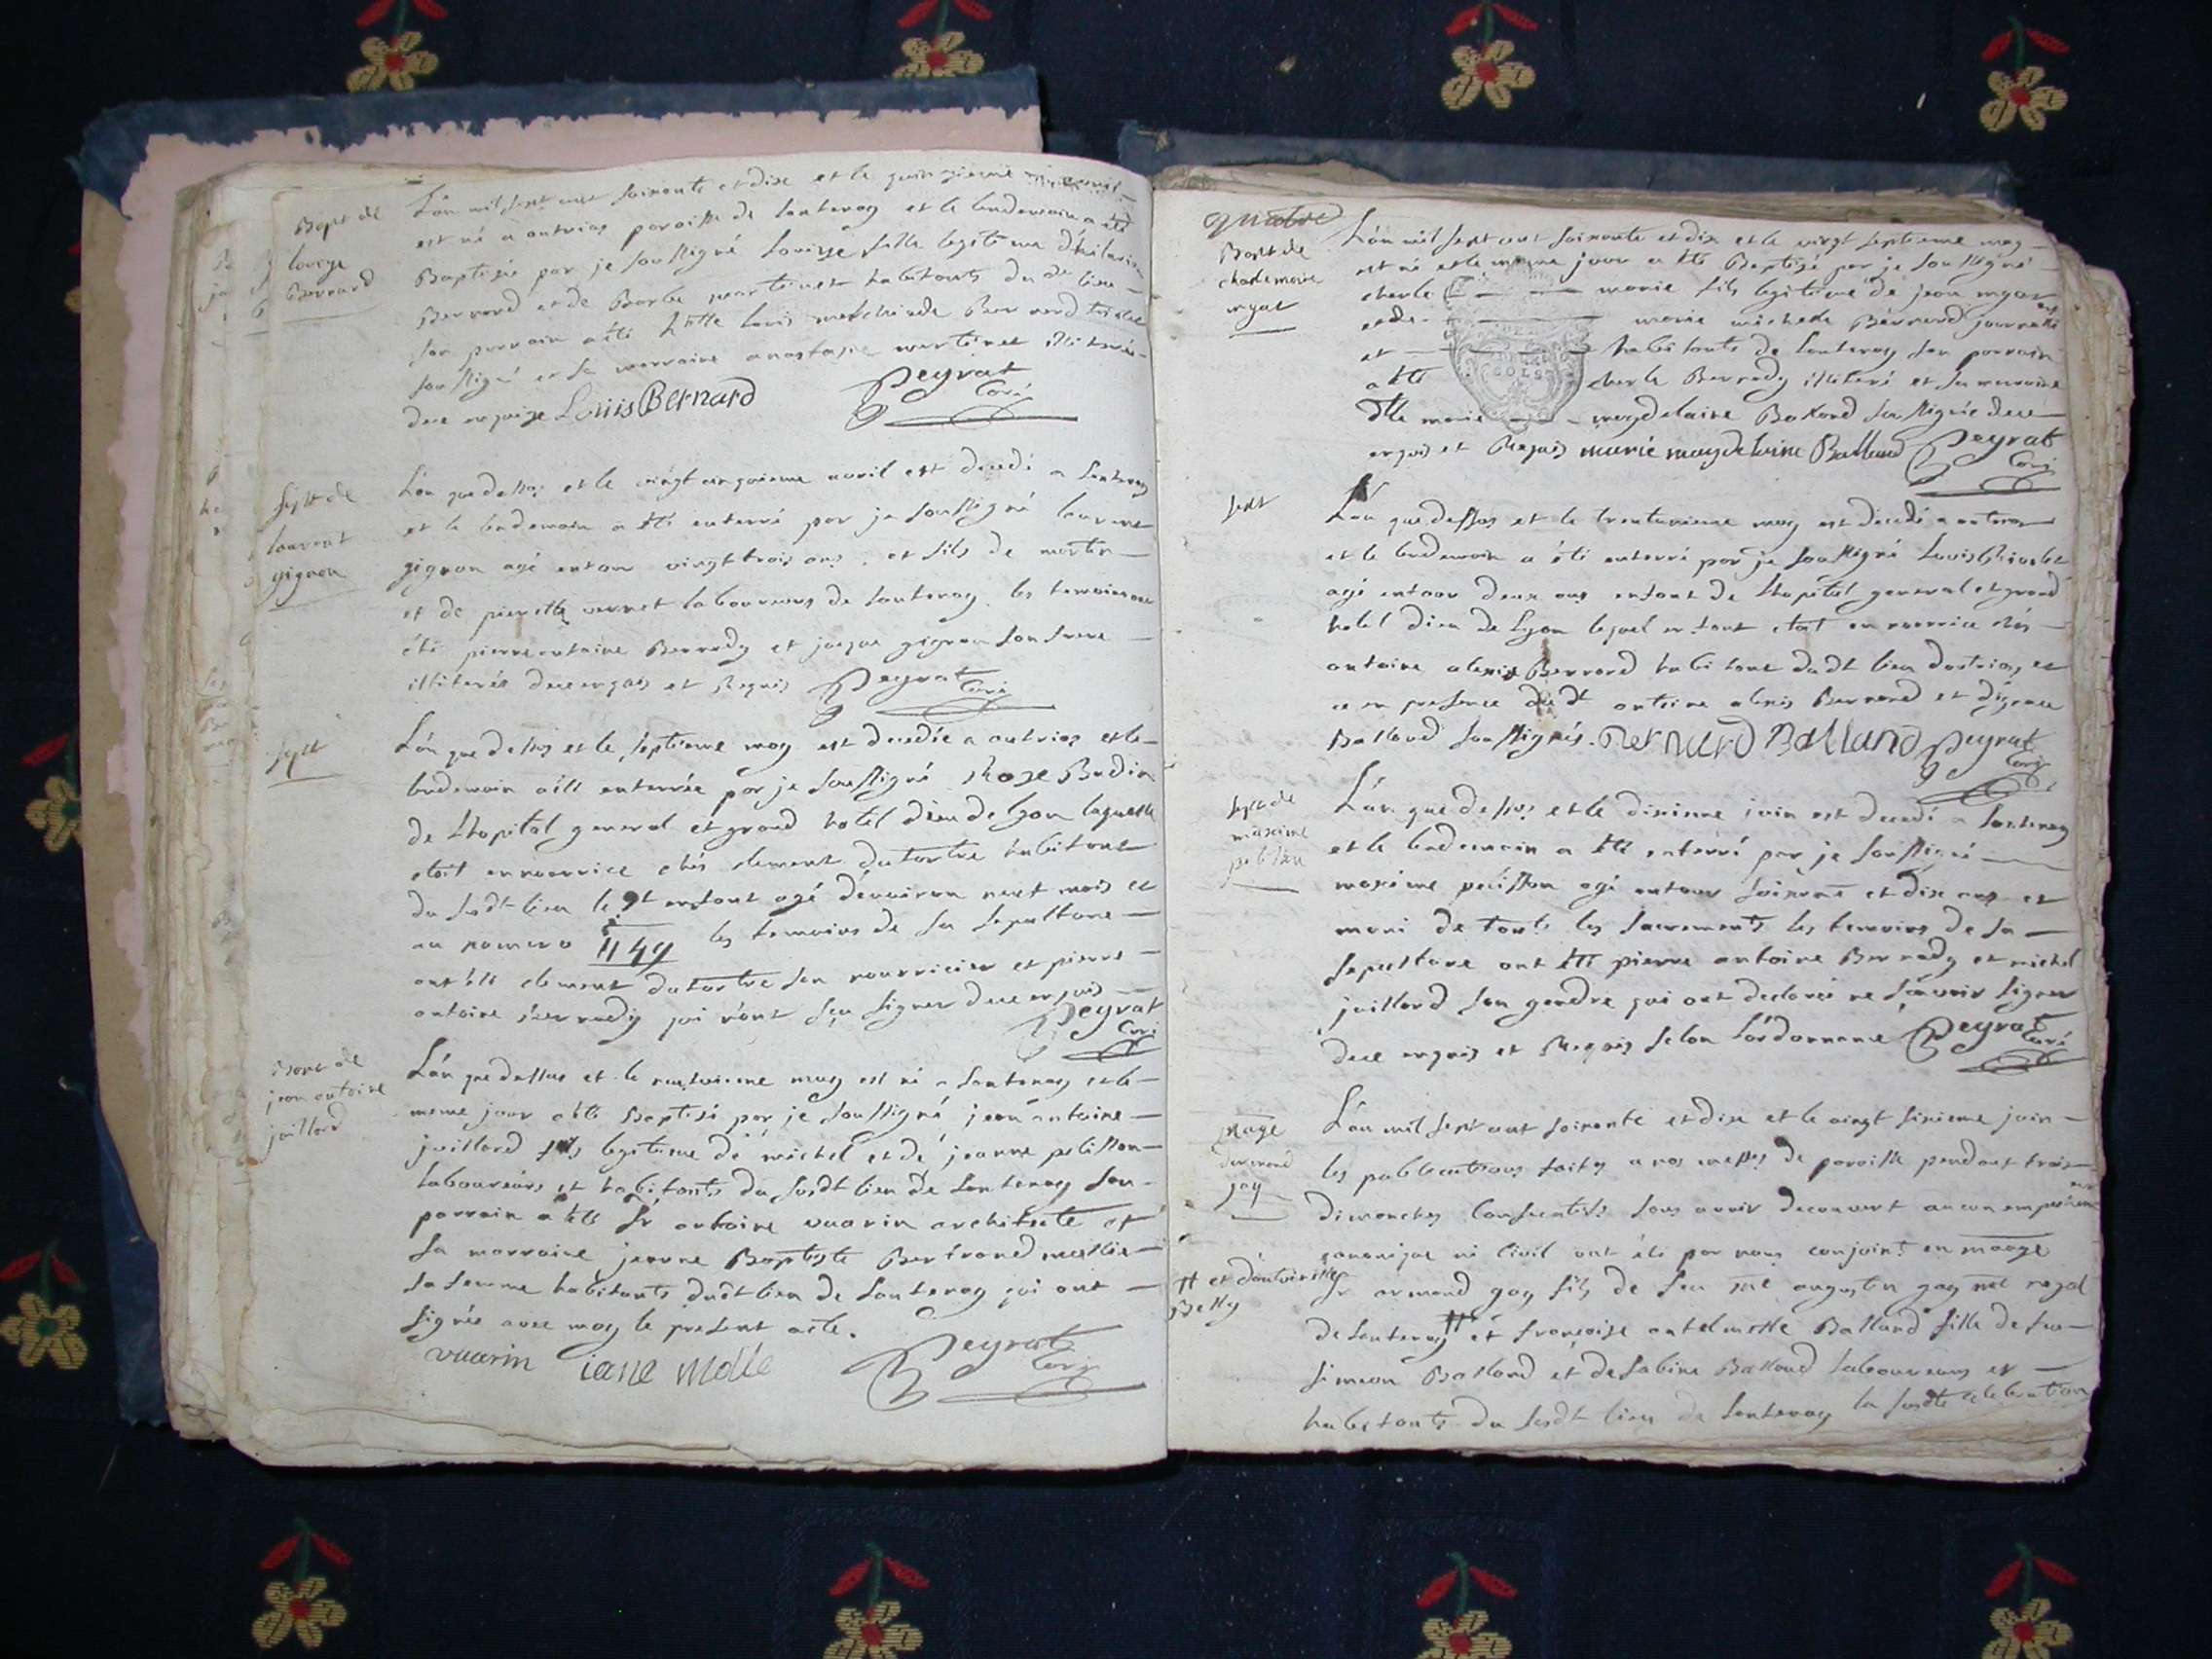 Bapt de
louyse
Bernard
L'an mil sept cent soixante et dixe et le quinzieme avril
est né a outrias paroisse de lantenay et le lendemain a été
Baptisée par je soussigné Louise fille legitime d'hilarion
Bernard et de Barbe martinet habitants du dt lieu
son parrain a été Louis melchiade Bernard
soussigné et sa marraine anastasie martinet illiterée
dece enquise Louis Bernard Peyrat Curé
sept de
laurent
gignon
L'an que dessus et le vingt cinquieme avril est decedé a lantenay
et le lendemain a été enterré par je soussigné laurent
gignon agé entour vingt trois ans et fils de martin
et de pierrette vernet laboureurs de lantenay les temoins ont
été pierre antoine Bernady et jacque gignon son frere
illiterés dece enquis et Requis Peyrat Curé
sept
L'an que dessus et le septieme may est decedée a outrias et le
lendemain a été enterrée par je soussigné Rose Budin
de l'hopital general et grand hotel dieu de lyon laquelle
etoit en nourrice chés clement dutartre habitant
du susdt lieu le dt enfant agé d'environ neuf mois et
au numero 1149 les temoins de sa sepulture
ont été clement dutartre son nourricier et pierre
antoine Bernady qui n'ont sçu signer dece enquis
Peyrat Curé
Bapt de
jean antoine
juillard
L'an que dessus et le may est né a lantenay et le
meme jour a été Baptisé par je soussigné jean antoine
juillard fils legitime de michel et de jeanne pelisson
laboureurs et habitants du susdt lieu de lantenay son
parrain a été Sr antoine vuarin architecte et
sa marraine jeanne Baptiste Bertrand mollie
sa femme habitants dudt lieu de lantenay qui ont
signés avec moy le present acte.
vuarin iane molle Peyrat Curé
quatre
Bapt de
charle marie
mgat
L'an mil sept cent soixante et dix et le vingt septieme may
est né et le meme jour a été Baptisé par je soussigné
charle marie fils legitime de jean
et de marie michele Bernard
et habitants de lantenay son parrain
a été charle Bernady illiteré et sa marraine
Dlle marie magdelaine Balland soussignée dece
enquis et Requis marie magdelaine Balland Peyrat Curé
sept
L'an que dessus et le trenteunieme may est decedé a outrias
et le lendemain a été enterré par je soussigné Louis
agé entour deux ans enfant de l'hopital general et grand
hotel dieu de Lyon lequel enfant etoit en nourrice chés
antoine alexis Bernard habitant dudt lieu doutrias et
ce en presence dudt antoine alexis Bernard et d'ignace
Balland soussignés. Bernard Balland Peyrat Curé
sept de
maxime
pelisson
L'an que dessus et le dixieme juin est decedé a lantenay
et le lendemain a été enterré par je soussigné
maxime pelisson agé entour soixante et dix ans et
muni de touts les sacrements les temoins de sa
sepulture ont été pierre antoine Bernady et michel
juillard son gendre qui ont declarés ne sçavoir signer
dece enquis et Requis selon l'ordonnance Peyrat Curé
mage
d'armand
gay
L'an mil sept cent soixante et dixe et le vingt sixieme juin
les publications faites a nos messes de paroisse pendant trois
dimanches consecutifs sans avoir decouvert aucun empechement
canonique ni civil ont été par nous conjoint en maage
# et d'antoinette
Belly
Sr armand gay fils de feu me augustin gay nre royal
de lantenay # et françoise antelmette Balland fille de feu
simeon Balland et de sabine Balland laboureurs et
habitants du susdt lieu de lantenay la susdte celebration